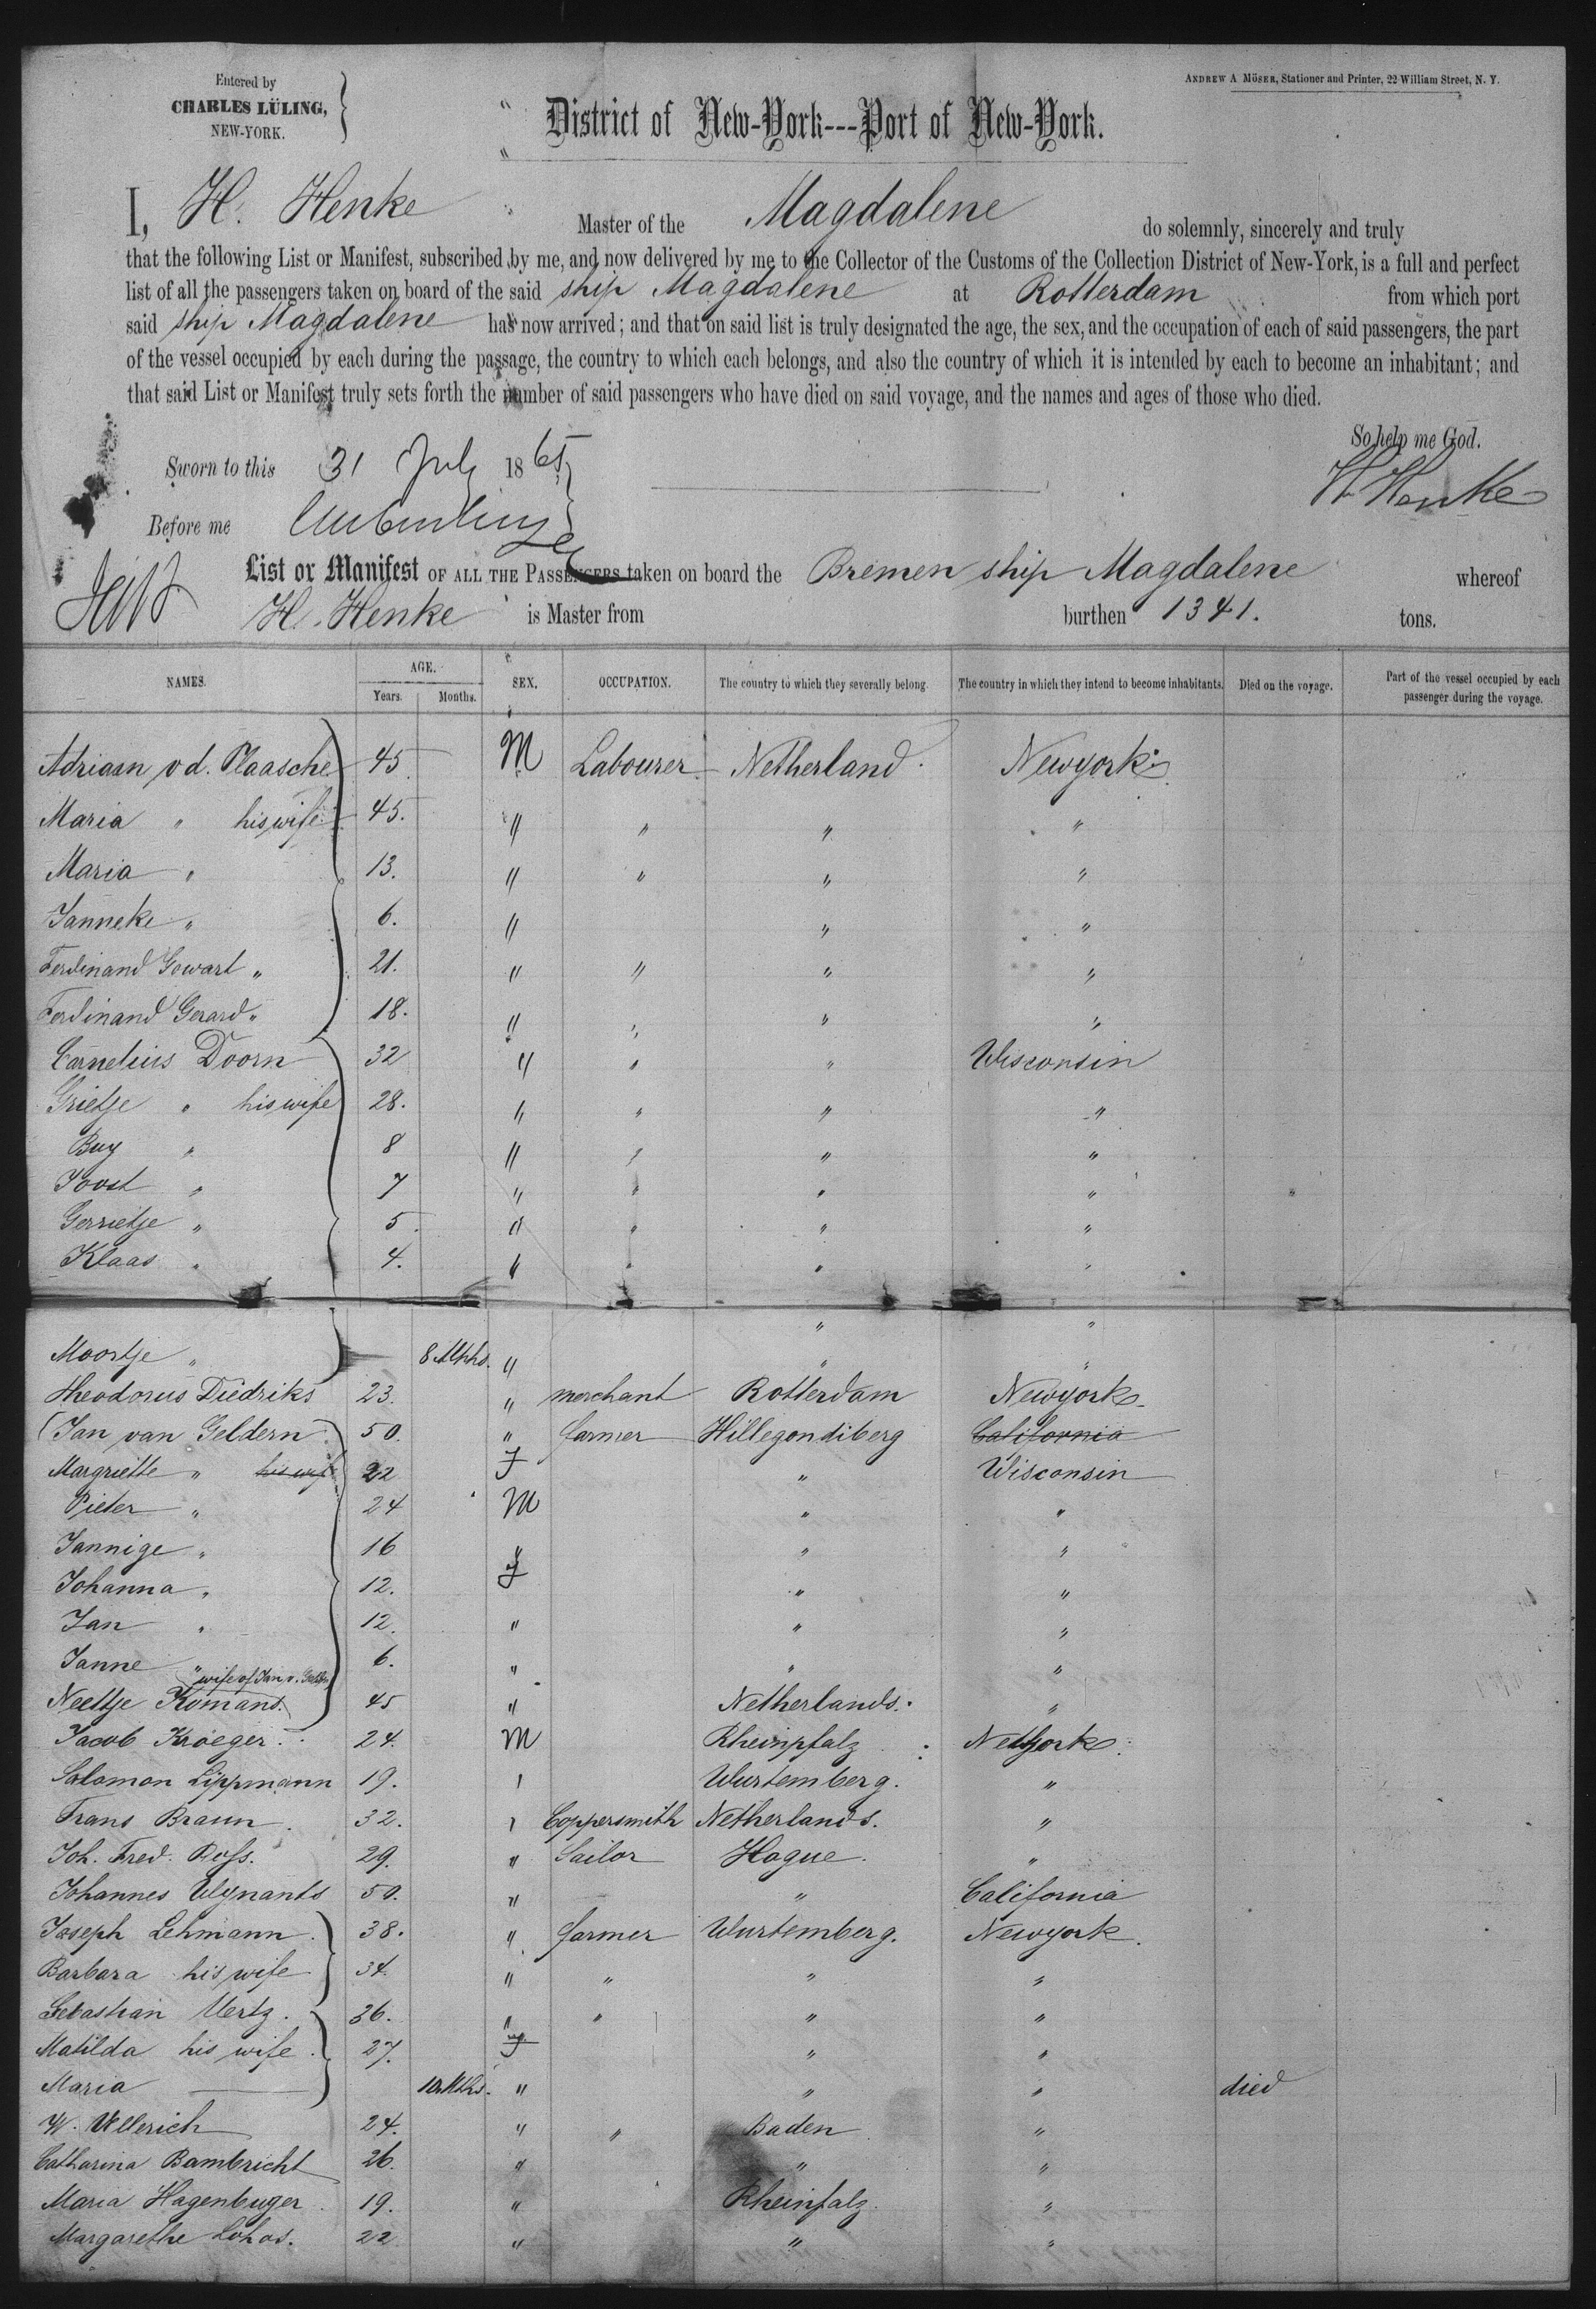 Entered by
CHARLES LÜLING,
NEW-YORK.
ANDREW A MÖSER, Stationer and Printer, 22 William Street, N. Y.
District of New-York---Port of New-York.
I, H. Henke Master of the Magdalene do solemnly, sincerely and truly
that the following List or Manifest, subscribed by me, and now delivered by me to the Collector of the Customs of the Collection District of New-York, is a full and perfect
list of all the passengers taken on board of the said ship Magdalene at Rotterdam from which port
said ship Magdalene has now arrived; and that on said list is truly designated the age, the sex, and the occupation of each of said passengers, the part
of the vessel occupied by each during the passage, the country to which each belongs, and also the country of which it is intended by each to become an inhabitant; and
that said List or Manifest truly sets forth the number of said passengers who have died on said voyage, and the names and ages of those who died.
So help me God.
Sworn to this 31 July 1865
H Henke
Before me
List or Manifest OF ALL THE PASSENGERS taken on board the Bremen ship Magdalene whereof
H. Henke is Master from burthen 1341. tons.
NAMES. AGE. Years. Months. SEX. OCCUPATION. The country to which they severally belong. The country in which they intend to become inhabitants. Died on the voyage. Part of the vessel occupied by each passenger during the voyage.
Adriaan v d. Plaasche 45 M Labourer Netherland Newyork
Maria " his wife 45. " " " "
Maria " 13. " " " "
Janneke " 6. " " "
Ferdinand Gowart " 21. " " " "
Ferdinand Gerard " 18. " " " "
Cornelius Doorn 32 " " " Wisconsin
Grietje " his wife 28. " " " "
Buy " 8 " " " "
Joost " 7 " " " "
Gerrietje " 5. " " " "
Klaas " 4. " " " "
Moortje " 8 Mths. " " "
Theodorus Diedriks 23. " merchant Rotterdam Newyork
Jan van Geldern 50. " farmer Hillegondiberg California
Margriette " his wife 22 f " Wisconsin
Pieter " 24 M " "
Jannige " 16 " " "
Johanna " 12. f " "
Jan " 12. " " "
Janne " 6. " " "
wife of Jan v. Geldern
Neeltje Komans. 45 " Netherlands. "
Jacob Kroeger 24. M Rheinpfalz Newyork
Salomon Lippmann 19. " Wurtemberg. "
Frans Braun 32. " Coppersmith Netherlands. "
Joh. Fred. Doss. 29. " Sailor Hague. "
Johannes Wynants 50. " " California
Joseph Lehmann 38. " farmer Wurtemberg. Newyork.
Barbara his wife 34. " " " "
Sebastian Mertz. 36. " " " "
Matilda his wife 27. f " "
Maria 10 Mths. " " " died
W. Ullerich 24. " " Baden "
Catharina Bambricht 26. " " "
Maria Hagenbuger 19. " Rheinfalz. "
Margarethe Lohos. 22 " " "